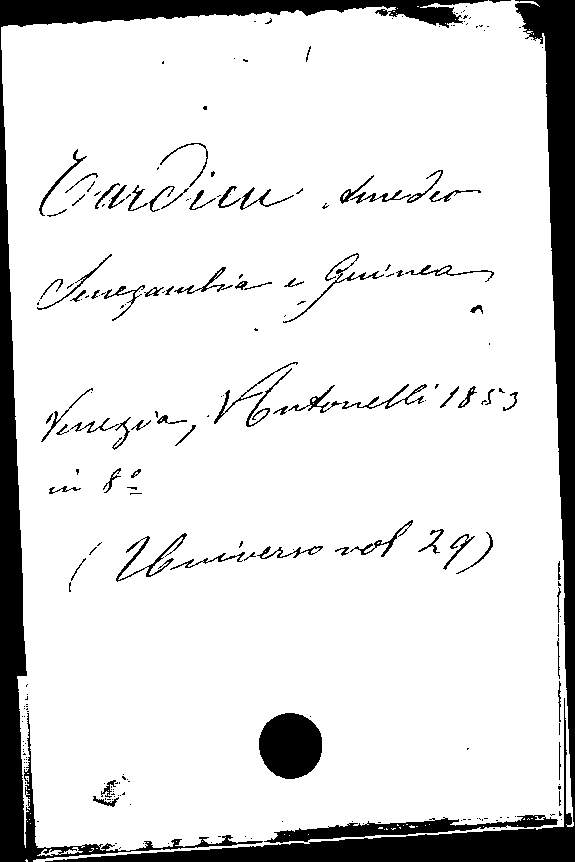 Tardieu Amedeo
Senegambia e Guinea
Venezia, Antonelli 1853
in 8º
(Universo vol 29)